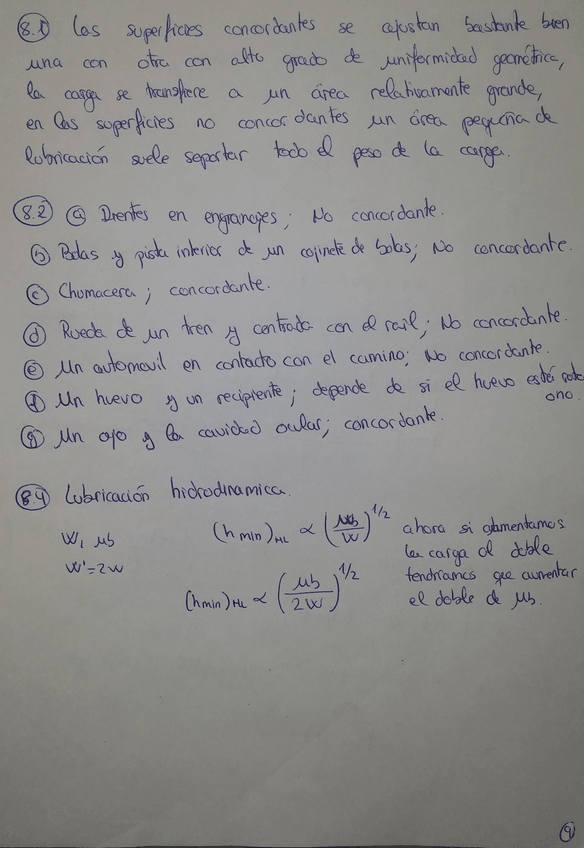 8.1 Las superficies concordantes se ajustan bastante bien
una con otra con alto grado de uniformidad geométrica,
la carga se transfiere a un área relativamente grande,
en las superficies no concordantes un área pequeña de
lubricación suele soportar todo el peso de la carga.
8.2 a Dientes en engranajes; No concordante.
b Bolas y pista interior de un cojinete de bolas; No concordante.
c Chumacera; concordante.
d Rueda de un tren y centrada con el rail; No concordante.
e Un automovil en contacto con el camino; No concordante.
f Un huevo y un recipiente; depende de si el huevo está roto
o no.
g Un ojo y la cavidad ocular; concordante.
8.4 Lubricación hidrodinamica.
W, μb (h min)HL ∝ (μb/W)^1/2 ahora si aumentamos
la carga al doble
W'=2W (hmin)HL ∝ (μb/2W)^1/2 tendríamos que aumentar
el doble de μb.
9